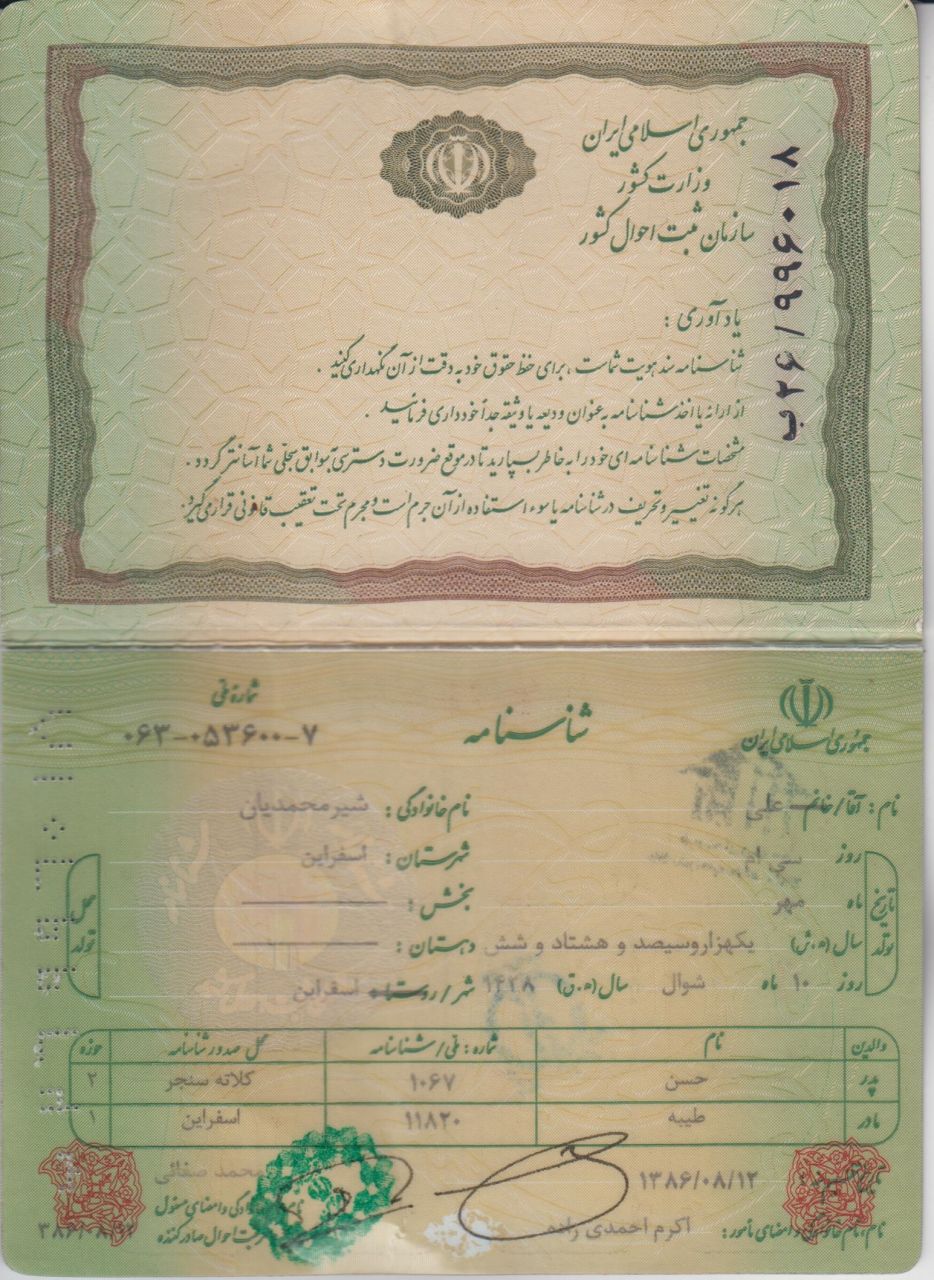 جمهوری اسلامی ایران
وزارت کشور
سازمان ثبت احوال کشور
ب۲۶/۹۹۶۰۱۸
یادآوری :
شناسنامه سند هویت شماست ، برای حفظ حقوق خود به دقت از آن نگهداری کنید .
از ارائه یا اخذ شناسنامه به عنوان ودیعه یا وثیقه جداً خودداری فرمائید .
مشخصات شناسنامه ای خود را به خاطر بسپارید تا در موقع ضرورت دسترسی به سوابق سجلی شما آسانتر گردد .
هرگونه تغییر و تحریف در شناسنامه یا سوء استفاده از آن جرم است و مجرم تحت تعقیب قانونی قرار می گیرد
جمهوری اسلامی ایران
شناسنامه
شماره ملی
۰۶۳-۰۵۳۶۰۰-۷
نام : آقا/خانم علی نام خانوادگی : شیرمحمدیان
تاریخ تولد
روز سی ام
ماه مهر
سال (ه.ش) یکهزاروسیصد و هشتاد و شش
روز ۱۰ ماه شوال سال (ه.ق) ۱۴۲۸
محل تولد
شهرستان : اسفراین
بخش :
دهستان :
شهر/روستا اسفراین
والدین نام شماره : ملی/شناسنامه محل صدور شناسنامه حوزه
پدر حسن ۱۰۶۷ کلاته سنجر ۲
مادر طیبه ۱۱۸۲۰ اسفراین ۱
۱۳۸۶/۰۸/۱۲
نام، نام خانوادگی و امضای مأمور : اکرم احمدی زاده
محمد صفائی
نام خانوادگی و امضای مسئول
ثبت احوال صادرکننده